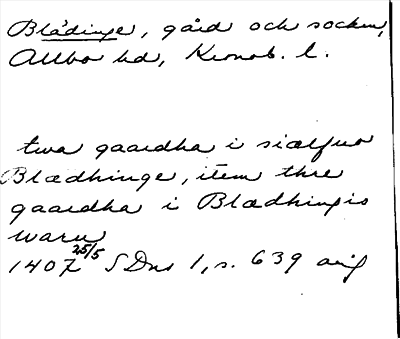 Blädinge, gård och socken,
Allbo hd, Kronob. l.
twa gaardha i siælfuo
Blædhinge, item thre
gaardha i Blædhingis
waru
1407 25/5 SDns 1, s. 639 orig